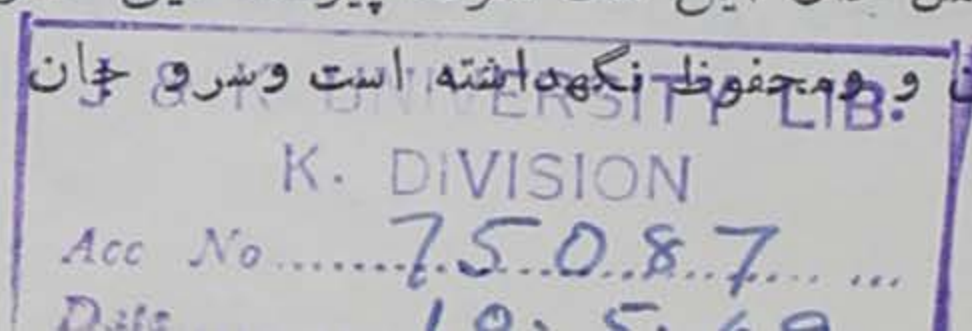 و ومحفوظ نگهداشته است وسر و جان
J & K UNIVERSITY LIB.
K. DIVISION
Acc No. 75087